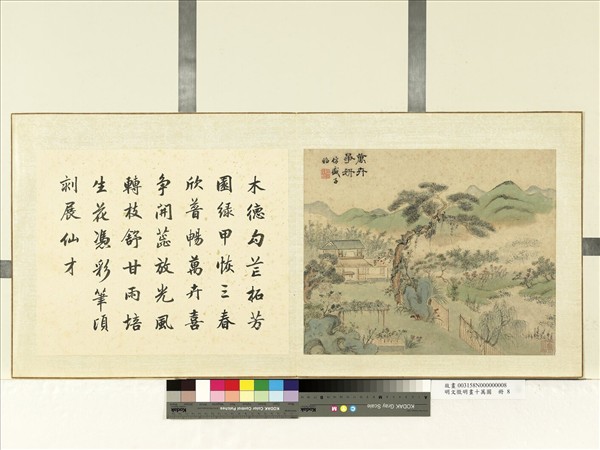 萬卉
爭妍
盛子
木德勾芒拓芳
園綠甲恢三春
欣普暢萬卉喜
争開蕋放光風
轉枝舒甘雨培
生花憑彩筆頃
刻展仙才
KODAK Color Control Patches
KODAK Gray Scale
故畫 003158N000000008
明文徵明畫十萬圖 冊 8